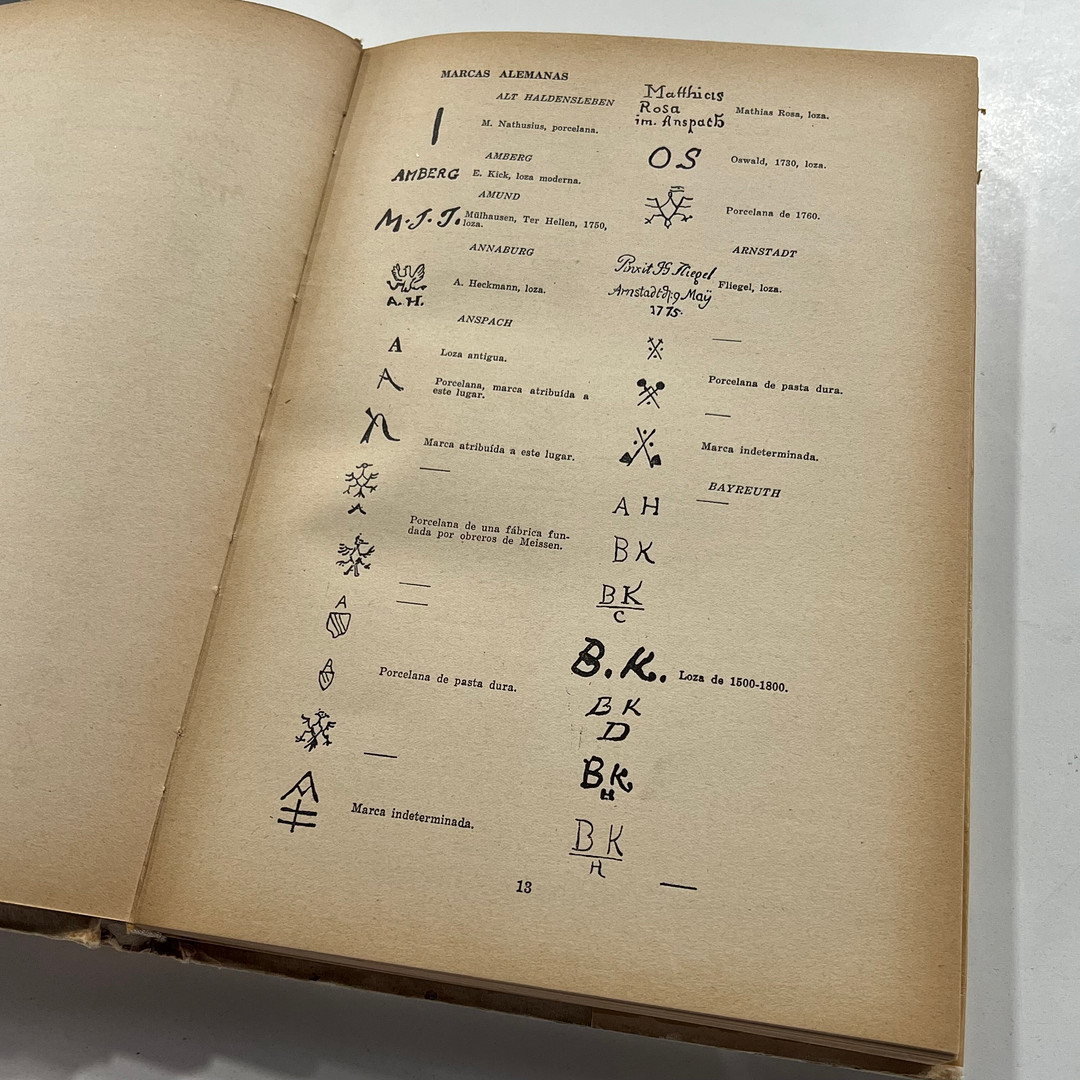 MARCAS ALEMANAS
ALT HALDENSLEBEN
M. Nathusius, porcelana.
AMBERG
AMBERG E. Kick, loza moderna.
AMUND
M.J.J. Mülhausen, Ter Hellen, 1750,
loza.
ANNABURG
A. Heckmann, loza.
A.H.
ANSPACH
A Loza antigua.
A Porcelana, marca atribuída a
este lugar.
Marca atribuída a este lugar.
A
Porcelana de una fábrica fun-
dada por obreros de Meissen.
A
A
A
Porcelana de pasta dura.
Marca indeterminada.
Matthias
Rosa
im. Anspach
Mathias Rosa, loza.
OS Oswald, 1730, loza.
Porcelana de 1760.
ARNSTADT
Fliegel
Arnstadt d: 9 Maÿ
1775.
Fliegel, loza.
Porcelana de pasta dura.
Marca indeterminada.
BAYREUTH
A H
B K
B K
C
B.K. Loza de 1500-1800.
B K
D
B K
H
B K
H
13